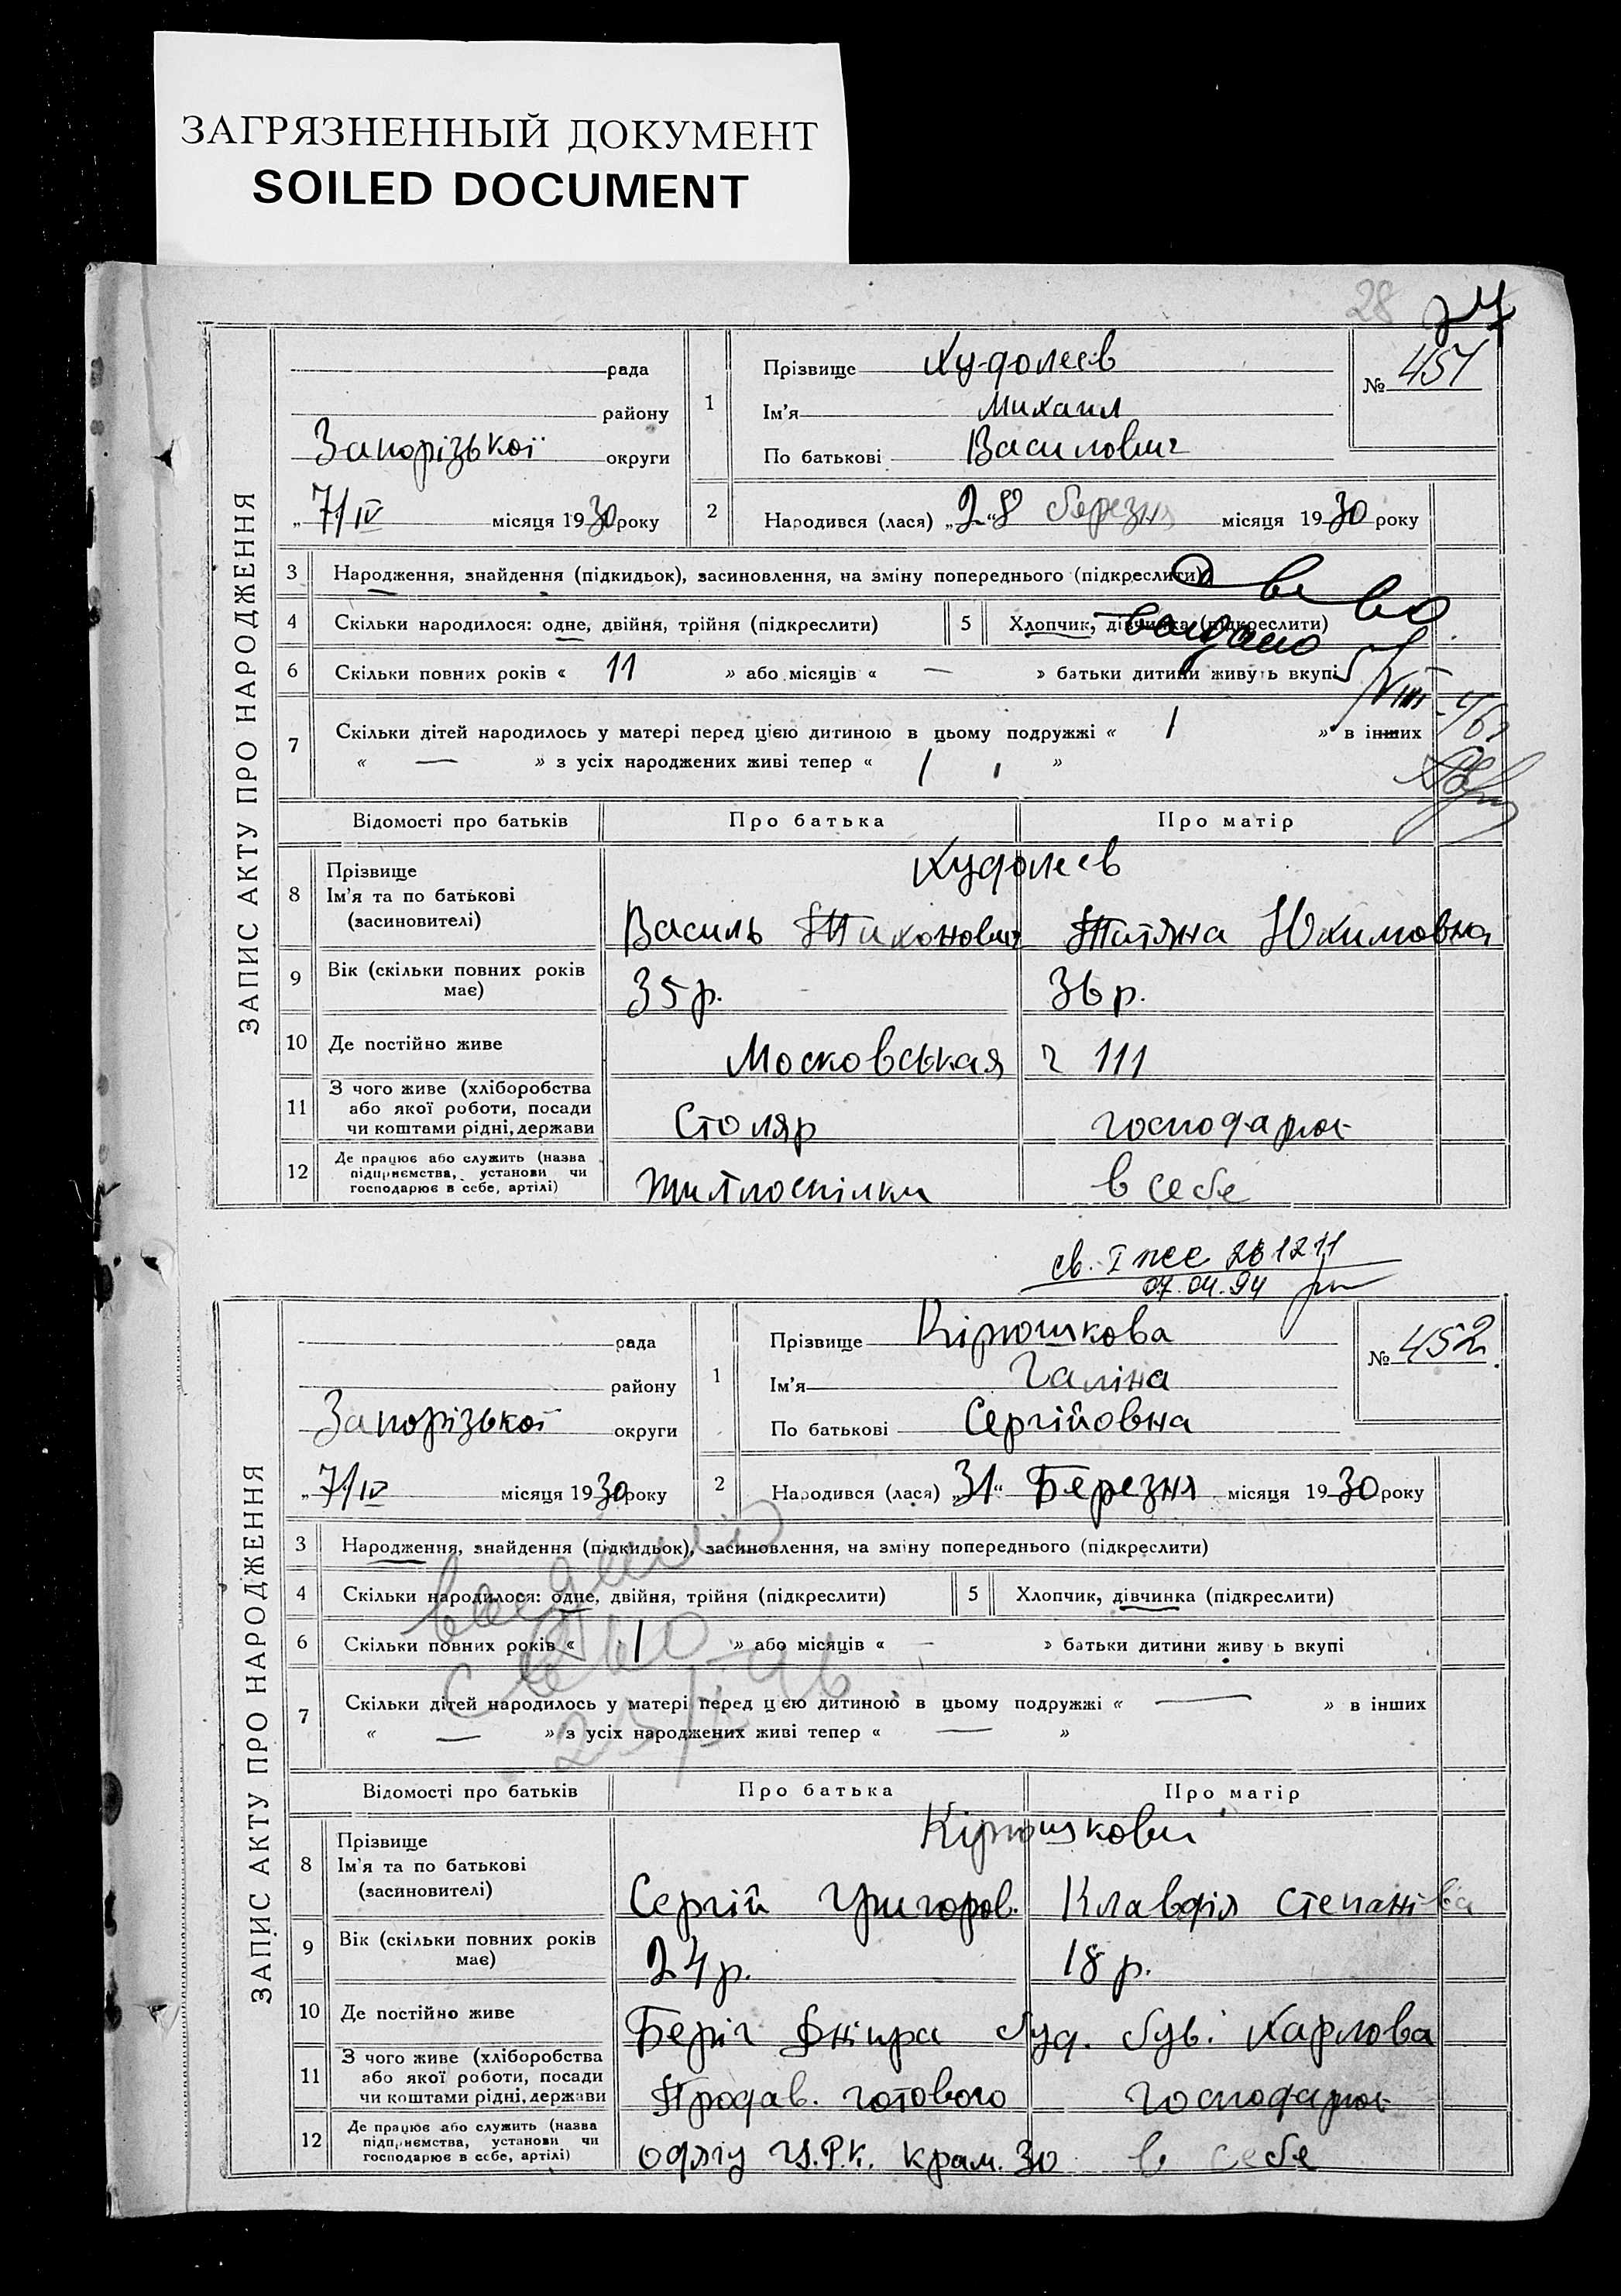 ЗАГРЯЗНЕННЫЙ ДОКУМЕНТ
SOILED DOCUMENT
28
ЗАПИС АКТУ ПРО НАРОДЖЕННЯ
рада
району
Запорізької округи
„ 7/IV місяця 1930 року
1
Прізвище Худолеєв
Ім'я Михаил
По батькові Василович
№ 451
2 Народився (лася) „28 березня місяця 1930 року
3 Народження, знайдення (підкидьок), засиновлення, на зміну попереднього (підкреслити)
4 Скільки народилося: одне, двійня, трійня (підкреслити) 5 Хлопчик, дівчинка (підкреслити)
видано
6 Скільки повних років « 11 » або місяців « — » батьки дитини живуть вкупі
7 Скільки дітей народилось у матері перед цією дитиною в цьому подружжі « 1 » в інших
« — » з усіх народжених живі тепер « 1 »
Відомості про батьків Про батька Про матір
8 Прізвище Худолеєв
Ім'я та по батькові
(засиновителі) Василь Тихонович Татяна Юхимовна
9 Вік (скільки повних років має) 35 р. 36 р.
10 Де постійно живе Московськая ч 111
11 З чого живе (хліборобства
або якої роботи, посади
чи коштами рідні, держави Столяр господарює
12 Де працює або служить (назва
підприємства, установи чи
господарює в себе, артілі) Житлоспілки в себе
св. I 261211
07.04.94
ЗАПИС АКТУ ПРО НАРОДЖЕННЯ
рада
району
Запорізької округи
„ 7/IV місяця 1930 року
1
Прізвище Кірюшкова
Ім'я Галіна
По батькові Сергійовна
№ 452
2 Народився (лася) „31“ Березня місяця 1930 року
3 Народження, знайдення (підкидьок), засиновлення, на зміну попереднього (підкреслити)
4 Скільки народилося: одне, двійня, трійня (підкреслити) 5 Хлопчик, дівчинка (підкреслити)
6 Скільки повних років « 1 » або місяців « — » батьки дитини живу ь вкупі
7 Скільки дітей народилось у матері перед цією дитиною в цьому подружжі « — » в інших
« — » з усіх народжених живі тепер « — »
Відомості про батьків Про батька Про матір
8 Прізвище Кірюшкови
Ім'я та по батькові
(засиновителі) Сергій Григоров. Клавдія Степанівна
9 Вік (скільки повних років має) 24 р. 18 р.
10 Де постійно живе Беріг Дніпра буд. був. Харлова
11 З чого живе (хліборобства
або якої роботи, посади
чи коштами рідні, держави Продав. готового Господарює
12 Де працює або служить (назва
підприємства, установи чи
господарює в себе, артілі) одягу Ц.Р.К. крам. 30 в себе